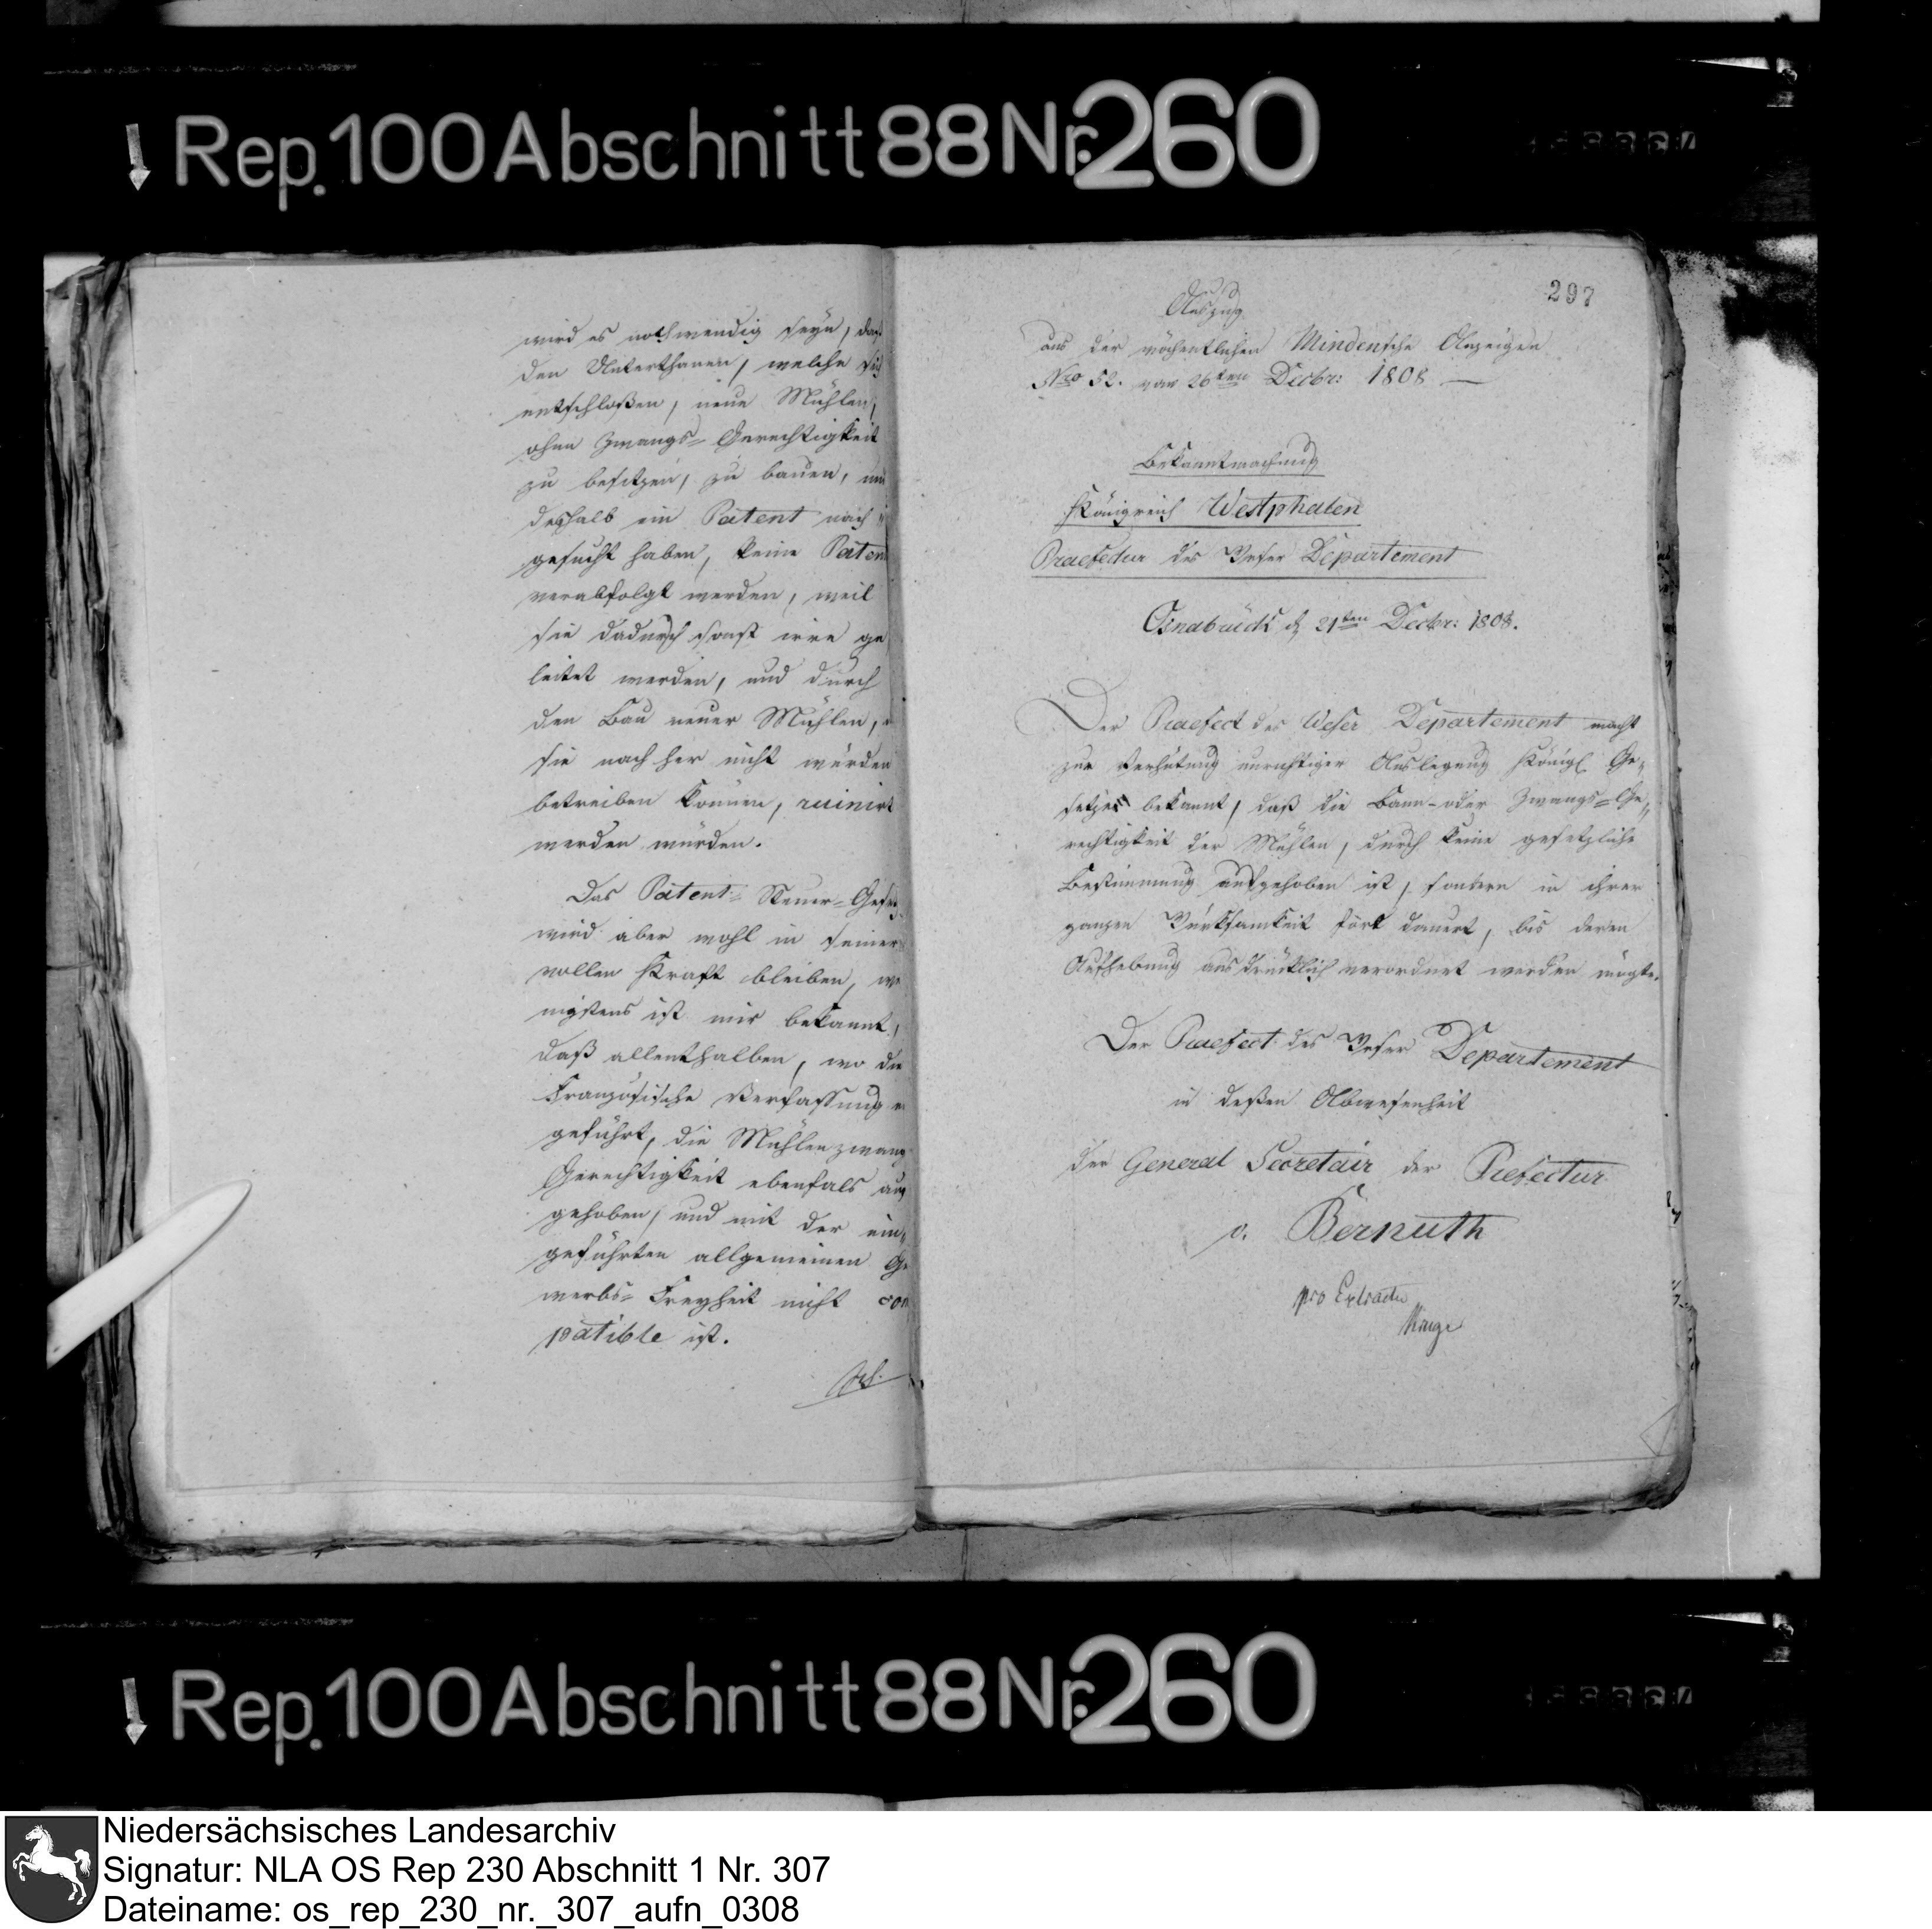 Rep. 100 Abschnitt 88 Nr. 260
wird es nothwendig seyn, daß
den Unterthanen, welche sich
entschloßen, neue Mühlen,
ohne Zwangs=Gerechtigkeit
zu besitzen, zu bauen, und
deshalb ein Patent nach
gesucht haben, keine Paten
verabfolgt werden, weil
sie dadurch sonst irre ge
leitet werden, und durch
den Bau neuer Mühlen,
sie nach her nicht würden
betreiben können, ruinirt
werden würden.
Das Patent=Steuer=Gesetz
wird aber wohl in seiner
vollen Kraft bleiben, we
nigstens ist mir bekannt,
daß allenthalben, wo die
Französische Verfassung
geführt, die Mühlenzwang
Gerechtigkeit ebenfals auf
gehoben, und mit der ein=
geführten allgemeinen Ge
werbs=Freyheit nicht com
patible ist.
297
Auszug
aus der wöchentlichen Mindensche Anzeigen
Nro 52. vom 26ten Decbr: 1808 —
Bekanntmachung
Königreich Westphalen
Praefectur des Weser Departement
Osnabrück d 21ten Decbr: 1808.
Der Praefect des Weser Departement macht
zur Verhütung unrichtiger Auslegung Königl Ge=
setzes bekannt, daß die Bann-oder Zwangs=Ge=
rechtigkeit der Mühlen, durch keine gesetzliche
Bestimmung aufgehoben ist, sondern in ihrer
ganzen Würksamkeit fort dauert, bis deren
Aufhebung ausdrücklich verordnet werden mögte.
Der Praefect des Weser Departement
in deßen Abwesenheit
der General Secretair der Prefectur
v. Bernuth
pro Extractu
Rep. 100 Abschnitt 88 Nr. 260
Niedersächsisches Landesarchiv
Signatur: NLA OS Rep 230 Abschnitt 1 Nr. 307
Dateiname: os_rep_230_nr._307_aufn_0308